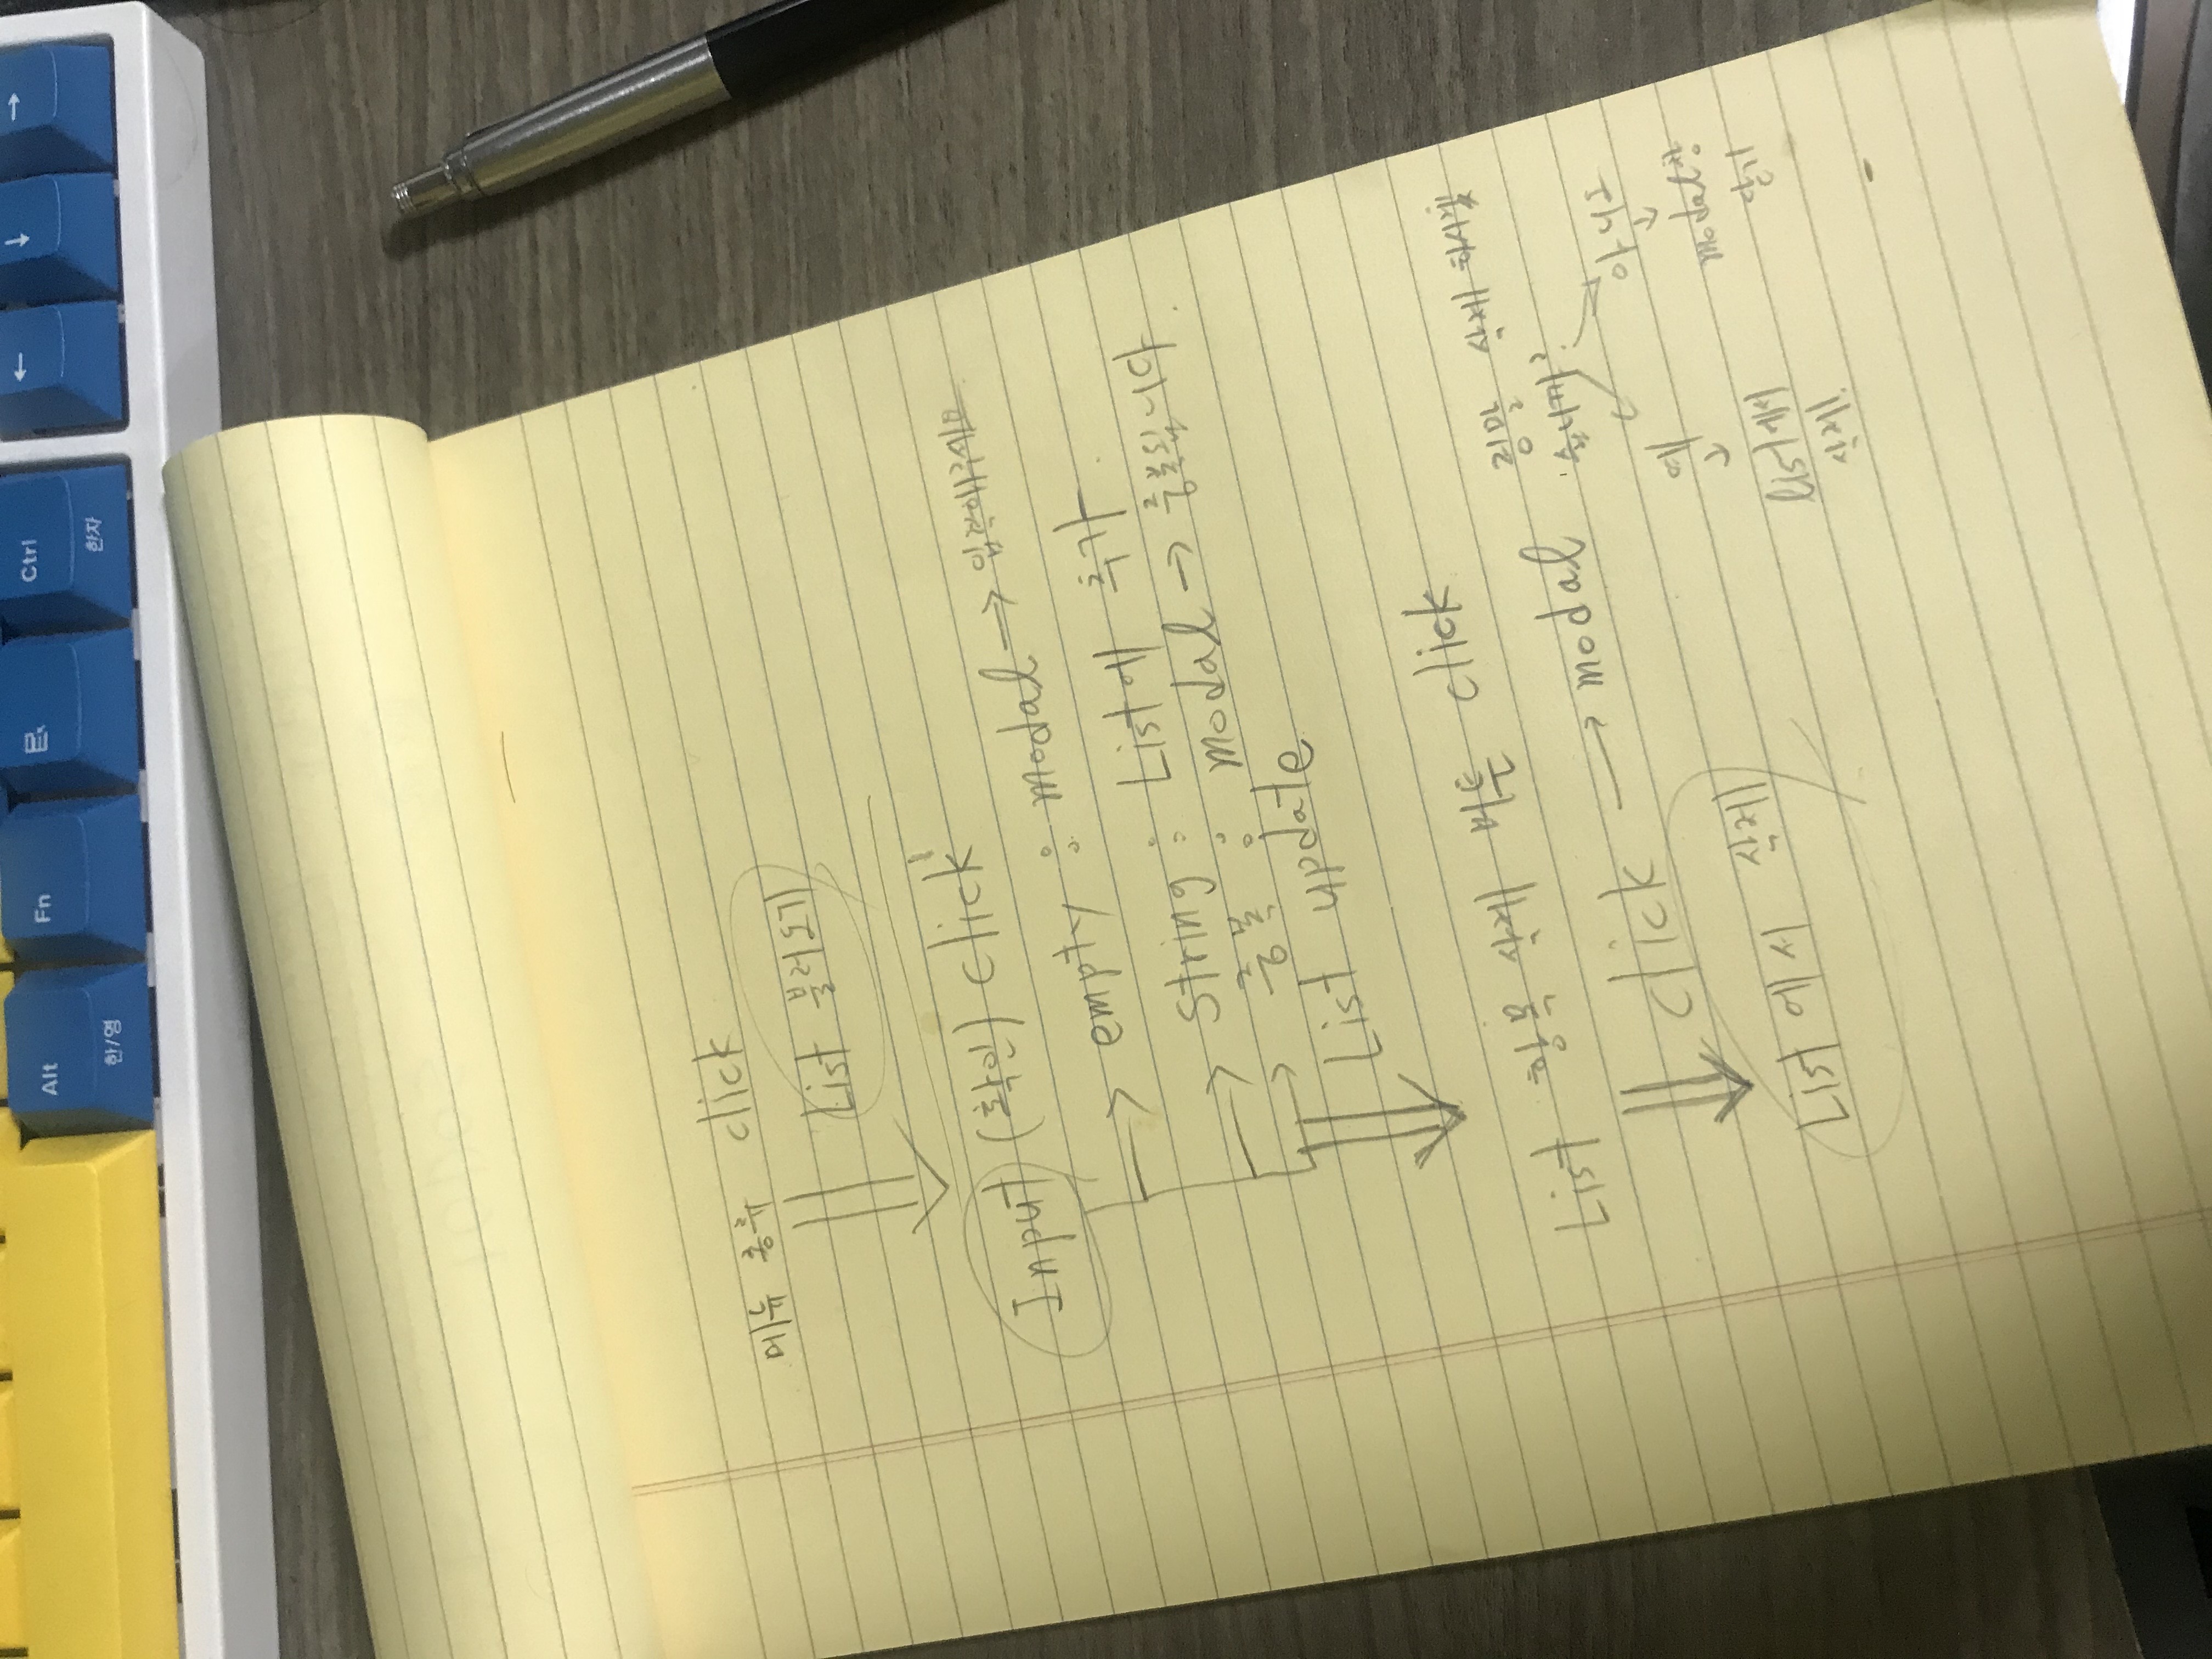 메뉴 종류 click
List 불러오기
Input (확인) click
→ empty : modal → 입력해주세요
→ String : List에 추가
→ 중복 : modal → 중복됩니다.
List update
List 항목 삭제 버튼 click
click → modal
정말 삭제 하시겠
습니까?
예
아니오
List에서
삭제.
modal창
닫기
List 에서 삭제
→
↓
←
Ctrl
한자
Fn
Alt
한/영